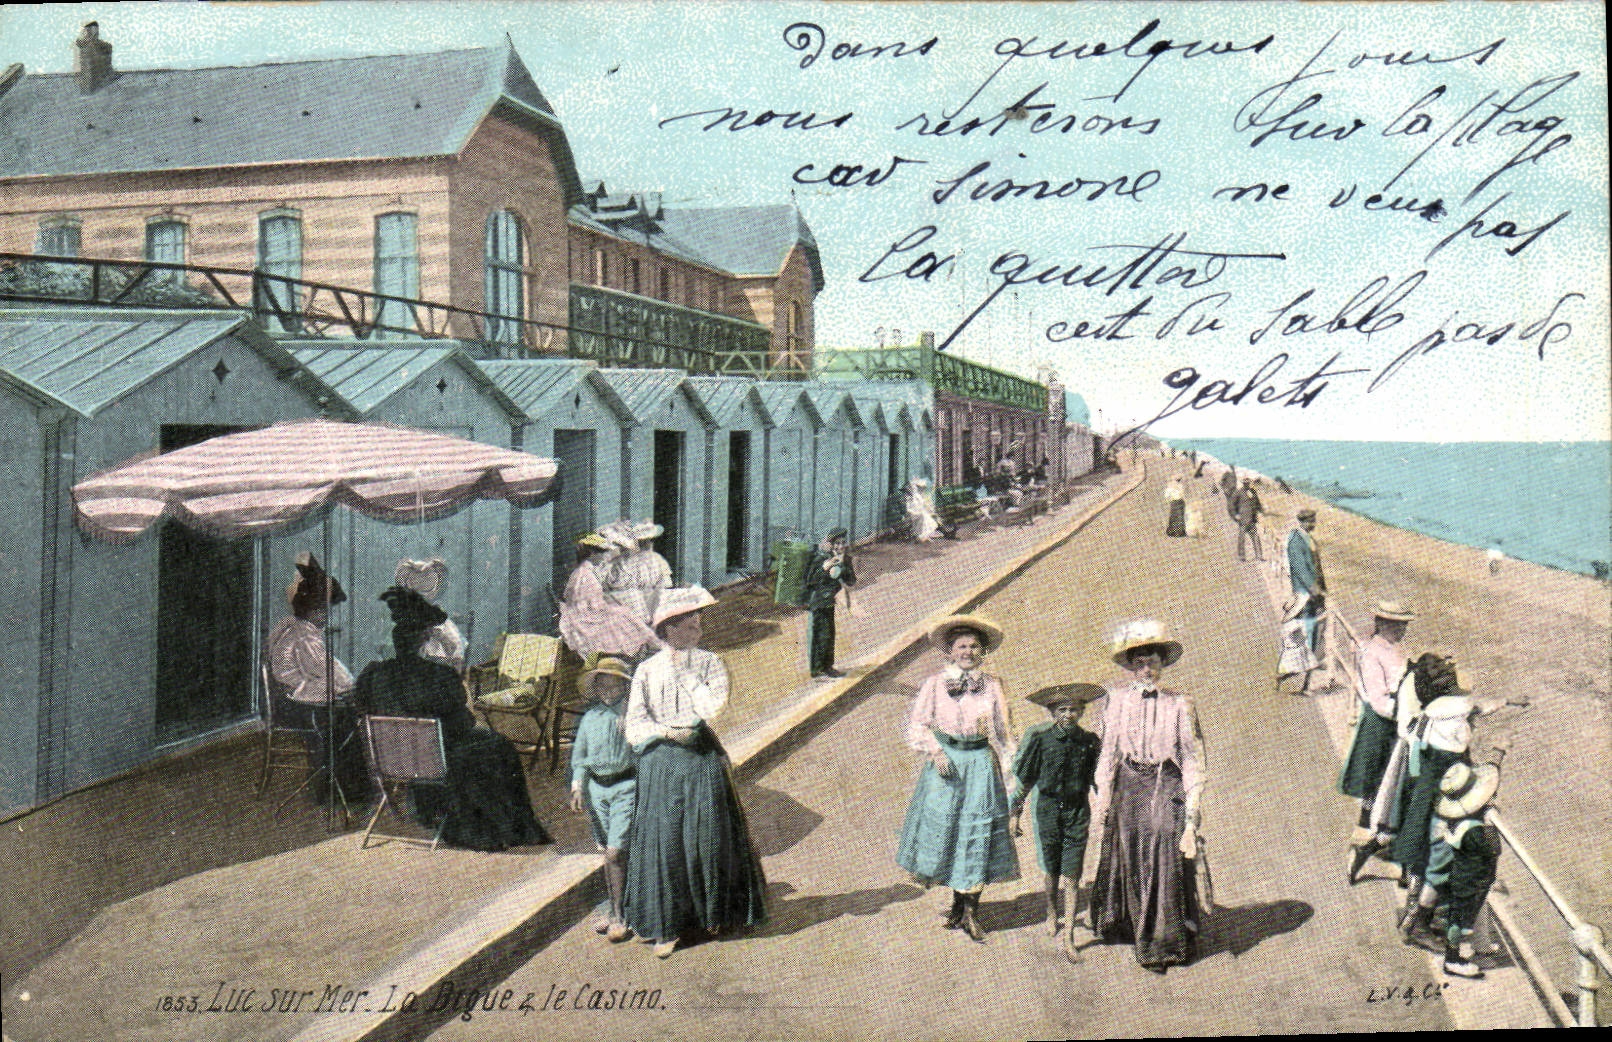 Dans quelques jours
nous resterons sur la plage
car simone ne veux pas
la quitter
cest du sable pas de
galets
1853. LUC sur Mer. La Digue & le Casino.
L.V. & Cie